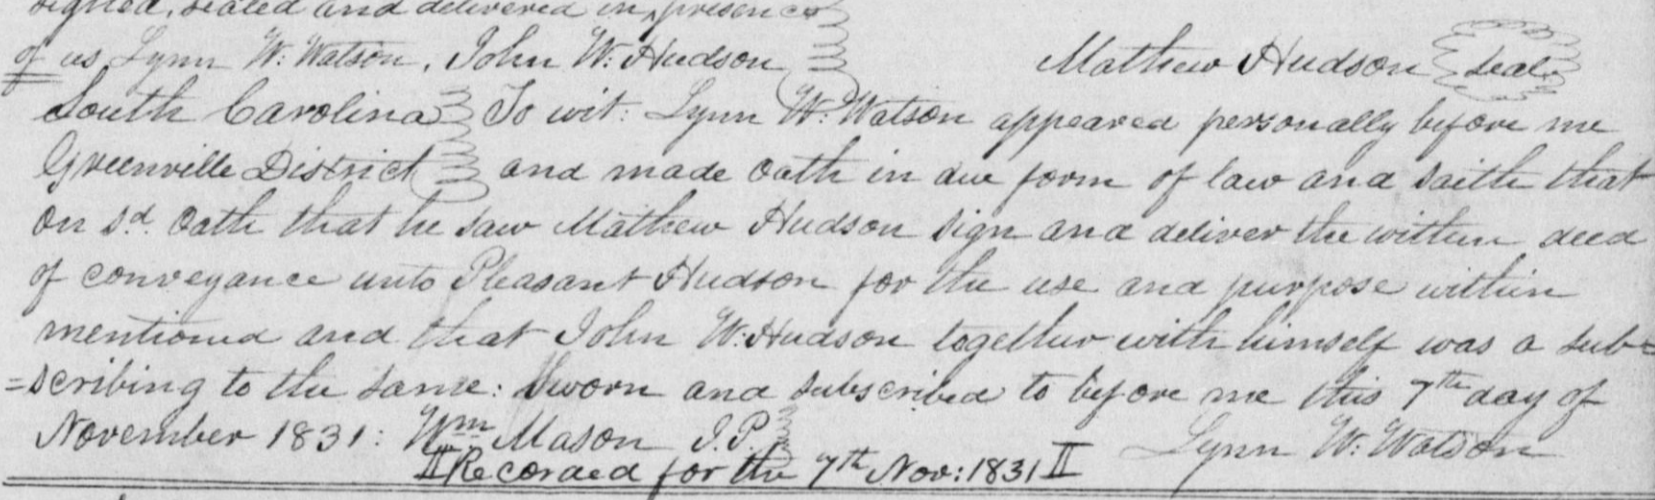 signed, sealed and delivered in presence
of us Lynn W. Watson, John W. Hudson Mathew Hudson Seal
South Carolina To wit: Lynn W. Watson appeared personally before me
Greenville District and made oath in due form of law and saith that
on sd. oath that he saw Mathew Hudson sign and deliver the within deed
of conveyance unto Pleasant Hudson for the use and purpose within
mentioned and that John W. Hudson together with himself was a sub=
=scribing to the same: Sworn and subscribed to before me this 7th day of
November 1831: Wm Mason J.P. Lynn W. Watson
II Recorded for the 7th Nov: 1831 II